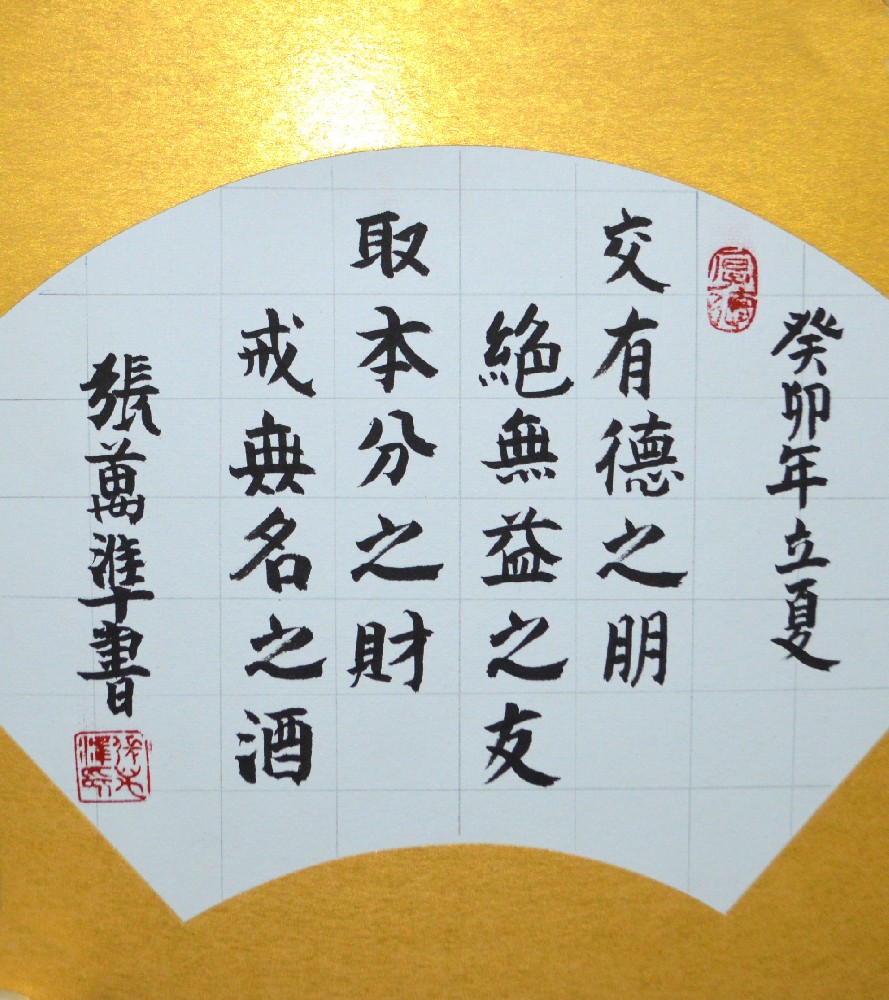 癸卯年立夏
厚德
交有德之朋
絶無益之友
取本分之財
戒無名之酒
張萬準書